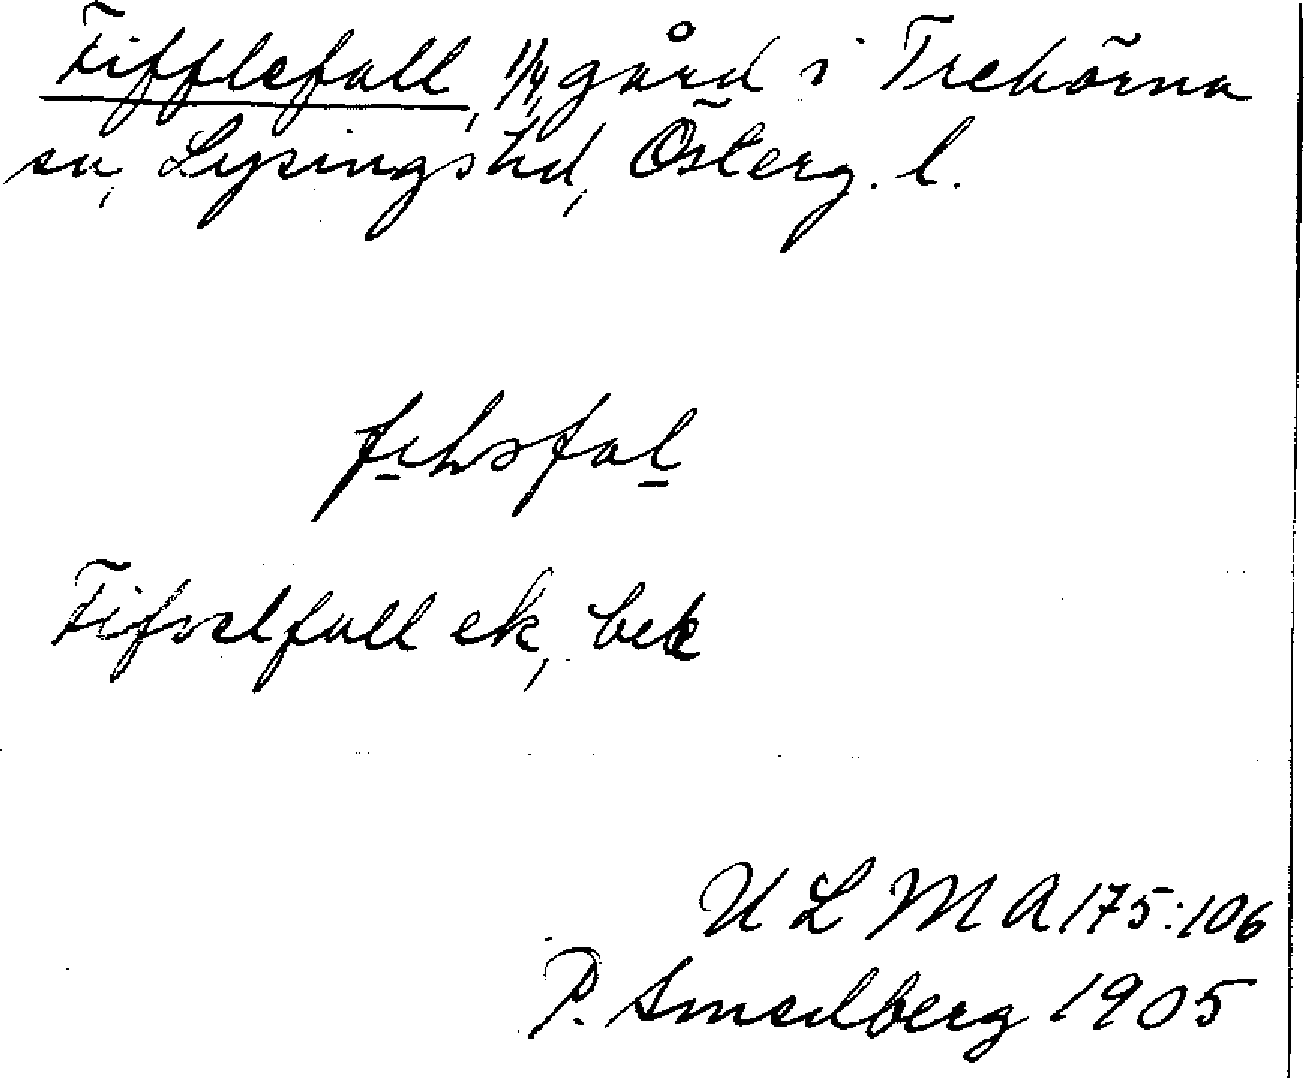 Fifflefall, 1/4 gård i Trehörna
sn, Lysings hd, Österg. l.
Fifvelfall ek, bek
ULMA 175:106
P. Smedberg 1905